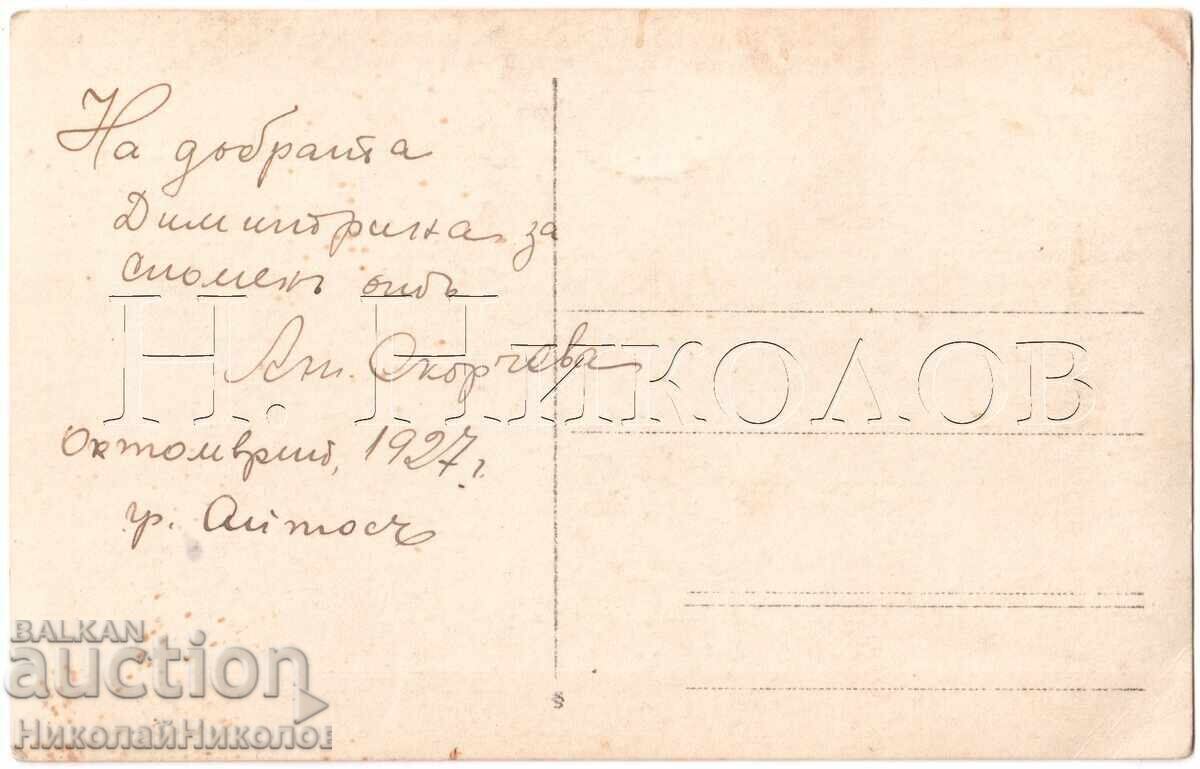 На добрата
Димитрина за
споменъ отъ
Ан. Скорчева
Октомврий, 1927 г.
гр. Айтосъ
Н. Николов
S
BALKAN
auction
НиколайНиколов